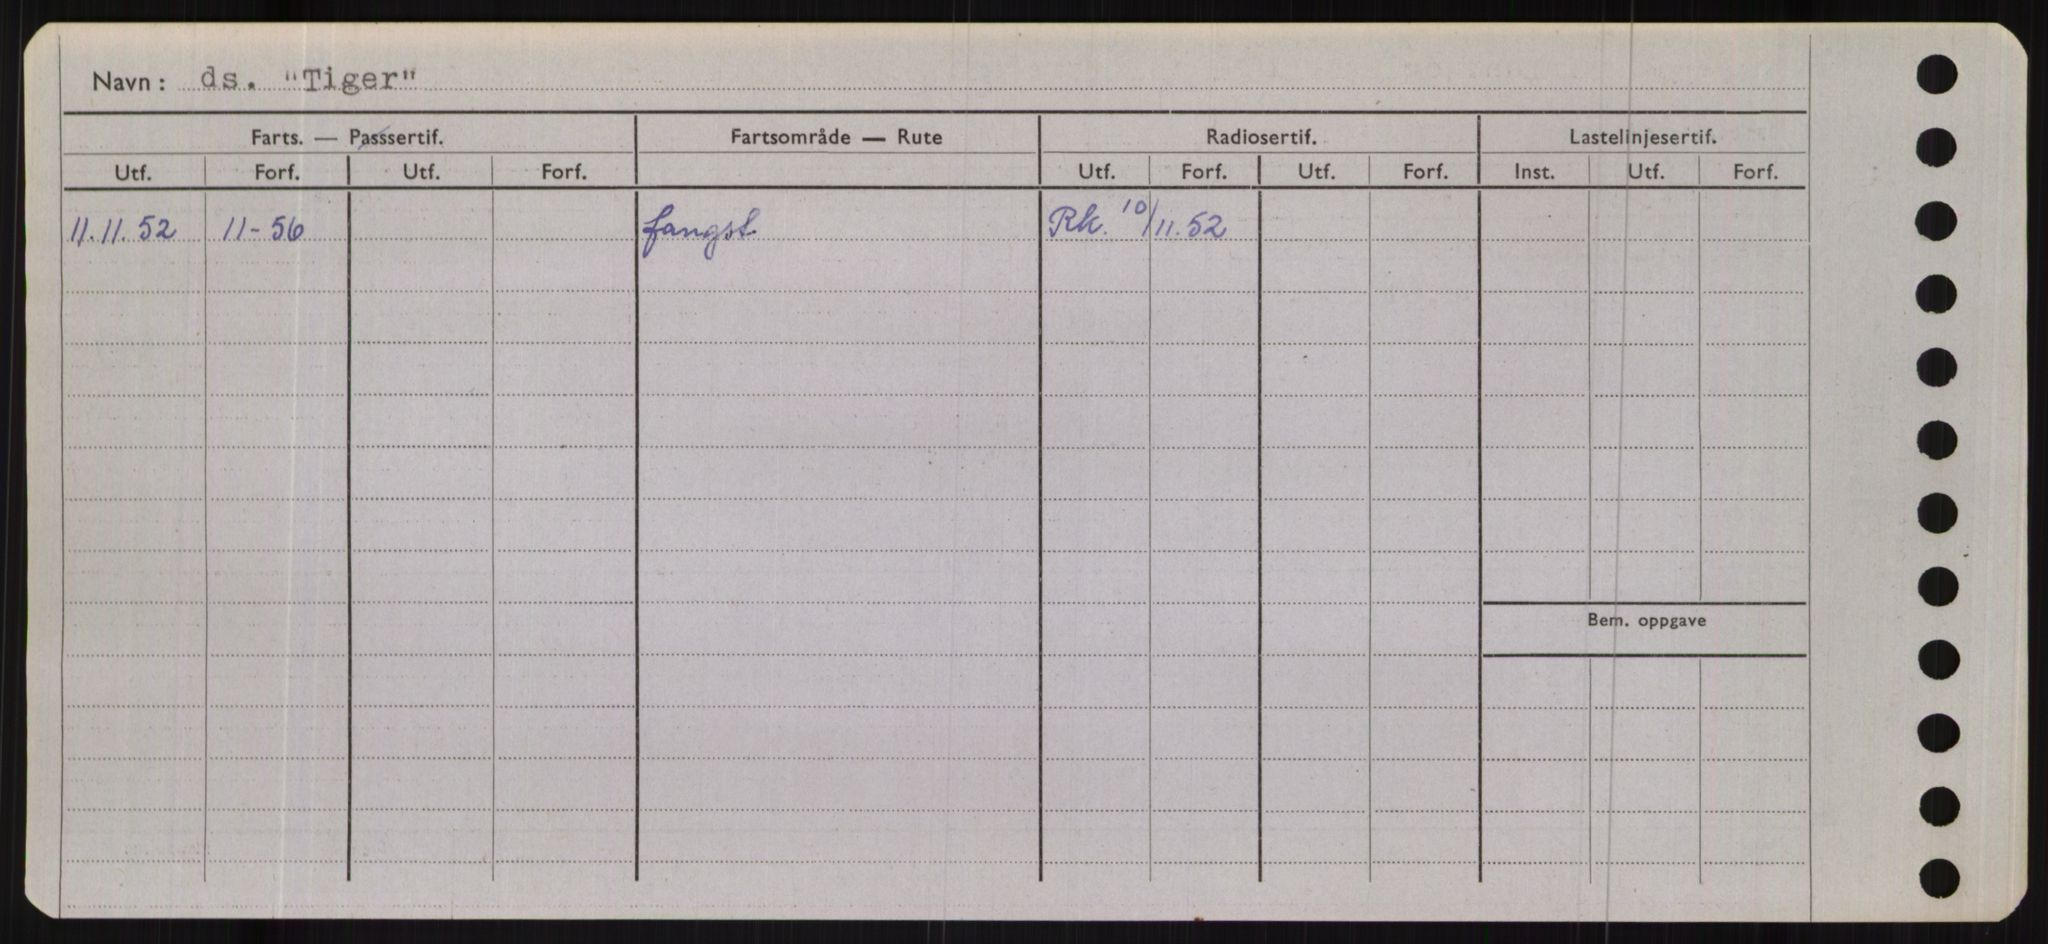 Navn: ds. "Tiger"
Farts. — Passsertif. Fartsområde — Rute Radiosertif. Lastelinjesertif.
Utf. Forf. Utf. Forf. Utf. Forf. Utf. Forf. Inst. Utf. Forf.
11.11.52 11-56 fangst Rk. 10/11.52
Bem. oppgave